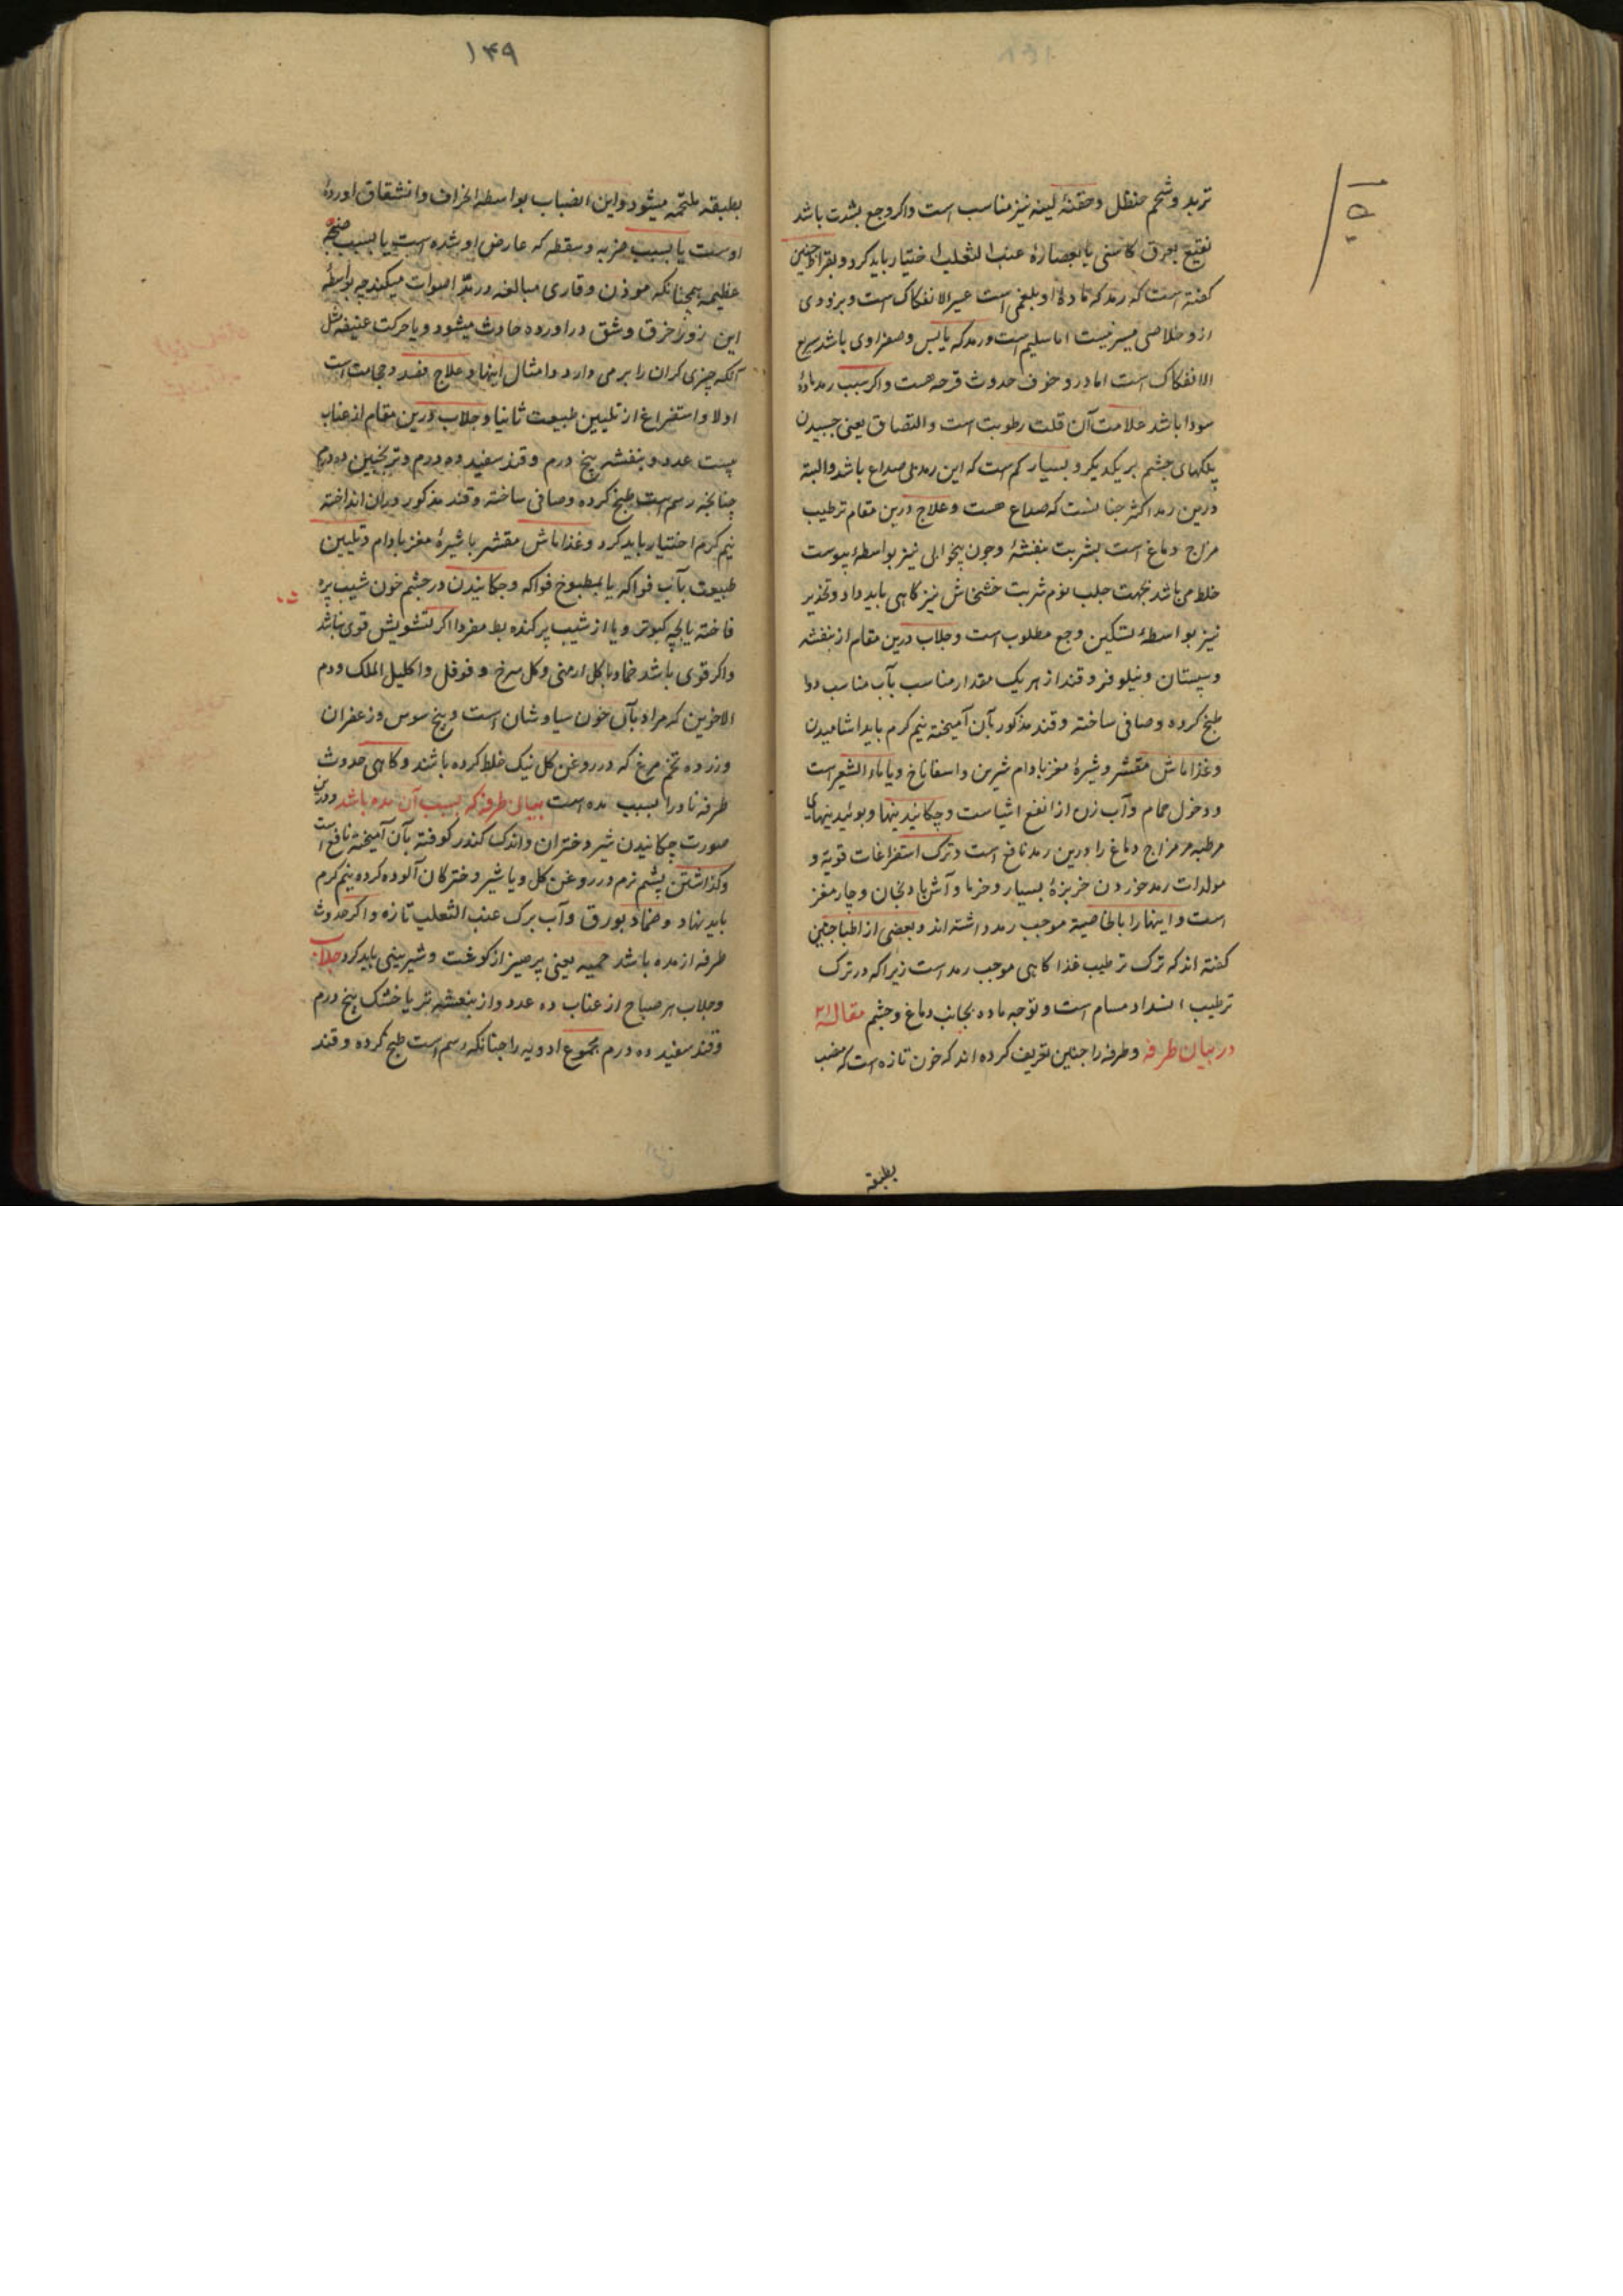 تربد و شحم حنظل و حقنهٔ لینه نیز مناسب است و اکر وجع بشدت باشد
نقیع بعرق کاسنی یا بعصارهٔ عنب الثعلب اختیار باید کرد و بقراط چنین
کفته است که رمد که مادهٔ او بلغمی است عسر الانفکاک است و بزودی
ازو خلاصی میسر نیست اما سلیم است و رمد که یابس و صفراوی باشد سریع
الانفکاک است اما درو خوف حدوث قرحه هست و اکر سبب رمد مادهٔ
سودا باشد علامت آن قلت رطوبت است و التصاق یعنی جسبیدن
پلکهای جشم بریکدیکر و بسیار کم است که این رمد بی صداع باشد و البته
درین رمد اکثر جنانست که صداع هست و علاج درین مقام ترطیب
مزاج دماغ است بشربت بنفشهٔ و جون بیخوابی نیز بواسطهٔ یبوست
خلط می باشد بجهت جلب نوم شربت خشخاش نیز کاهی باید داد و تخدیر
نیز بواسطهٔ تسکین وجع مطلوب است و جلاب درین مقام از بنفشه
و سپستان و نیلوفر و قند از هر یک مقدار مناسب بآب مناسب دوا
طبخ کرده و صافی ساخته و قند مذکور بآن آمیخته نیم کرم باید اشامیدن
و غذا ماش مقشر و شیرهٔ مغز بادام شیرین و اسفاناخ و یا ماء الشعیر است
و دخول حمام و آب زن از انفع اشیاست و چکانیدینها و بوئیدینهای
مرطبه مر مزاج دماغ را درین رمد نافع است و ترک استفراغات قویة و
مولدات رمد خوردن خربزهٔ بسیار و خرما و آش بادنجان و چار مغز
است و اینها را بالخاصیة موجب رمد داشته اند و بعضی از اطبا جنین
کفته اند که ترک ترطیب غذا کاهی موجب رمد است زیرا که در ترک
ترطیب انسداد مسام است و توجه ماده بجانب دماغ و جشم مقالهٔ
در بیان طرفه و طرفه را جنین تعریف کرده اند که خون تازه است که منصب
بطبقه
۱۴۹
بطبقه ملتحمه میشود و این انصباب بواسطهٔ انخراف و انشقاق اوردهٔ
اوست یا بسبب ضربه و سقطه که عارض او شده است یا بسبب صیحهٔ
عظیمه همچنانکه موذن و قاری مبالغه در مد اصوات میکند چه بواسطهٔ
این زور خرق و شق در اورده حادث میشود و یا حرکت عنیفه مثل
آنکه چیزی کران را برمی دارد و امثال اینها و علاج فصد و حجامت است
اولا و استفراغ از تلیین طبیعت ثانیا و جلاب درین مقام از عناب
بیست عدد و بنفشه پنج درم و قند سفید ده درم و ترنجبین ده درم
چنانچه رسم است طبخ کرده و صافی ساخته و قند مذکور دران انداخته
نیم کرم اختیار باید کرد و غذا ماش مقشر با شیرهٔ مغز بادام و تلیین
طبیعت بآب فواکه یا بمطبوخ فواکه و جکانیدن در جشم خون شیب پره
فاخته یا بچه کبوتر و یا از شیب پر کنده بط مفردا اکر تشویش قوی نباشد
و اکر قوی باشد ضماد با کل ارمنی و کل سرخ و فوفل و اکلیل الملک و دم
الاخوین که مراد بآن خون سیاوشان است و بیخ سوس و زعفران
و زرده تخم مرغ که در روغن کل نیک خلط کرده باشند و کاهی حدوث
طرفه نادرا بسبب مده است بیان طرفه که بسبب آن مده باشد و درین
صورت چکانیدن شیر دختران و اندک کندر کوفته بآن آمیخته نافع است
و کذاشتن پشم نرم در روغن کل و یا شیر دخترکان آلوده کرده نیم کرم
باید نهاد و ضماد بورق و آب برک عنب الثعلب تازه و اکر حدوث
طرفه از مده باشد حمیه یعنی پرهیز از کوشت و شیرینی باید کرد جلاب
و جلاب هر صباح از عناب ده عدد و از بنفشه تر یا خشک پنج درم
و قند سفید ده درم مجموع ادویه را جنانکه رسم است طبخ کرده و قند